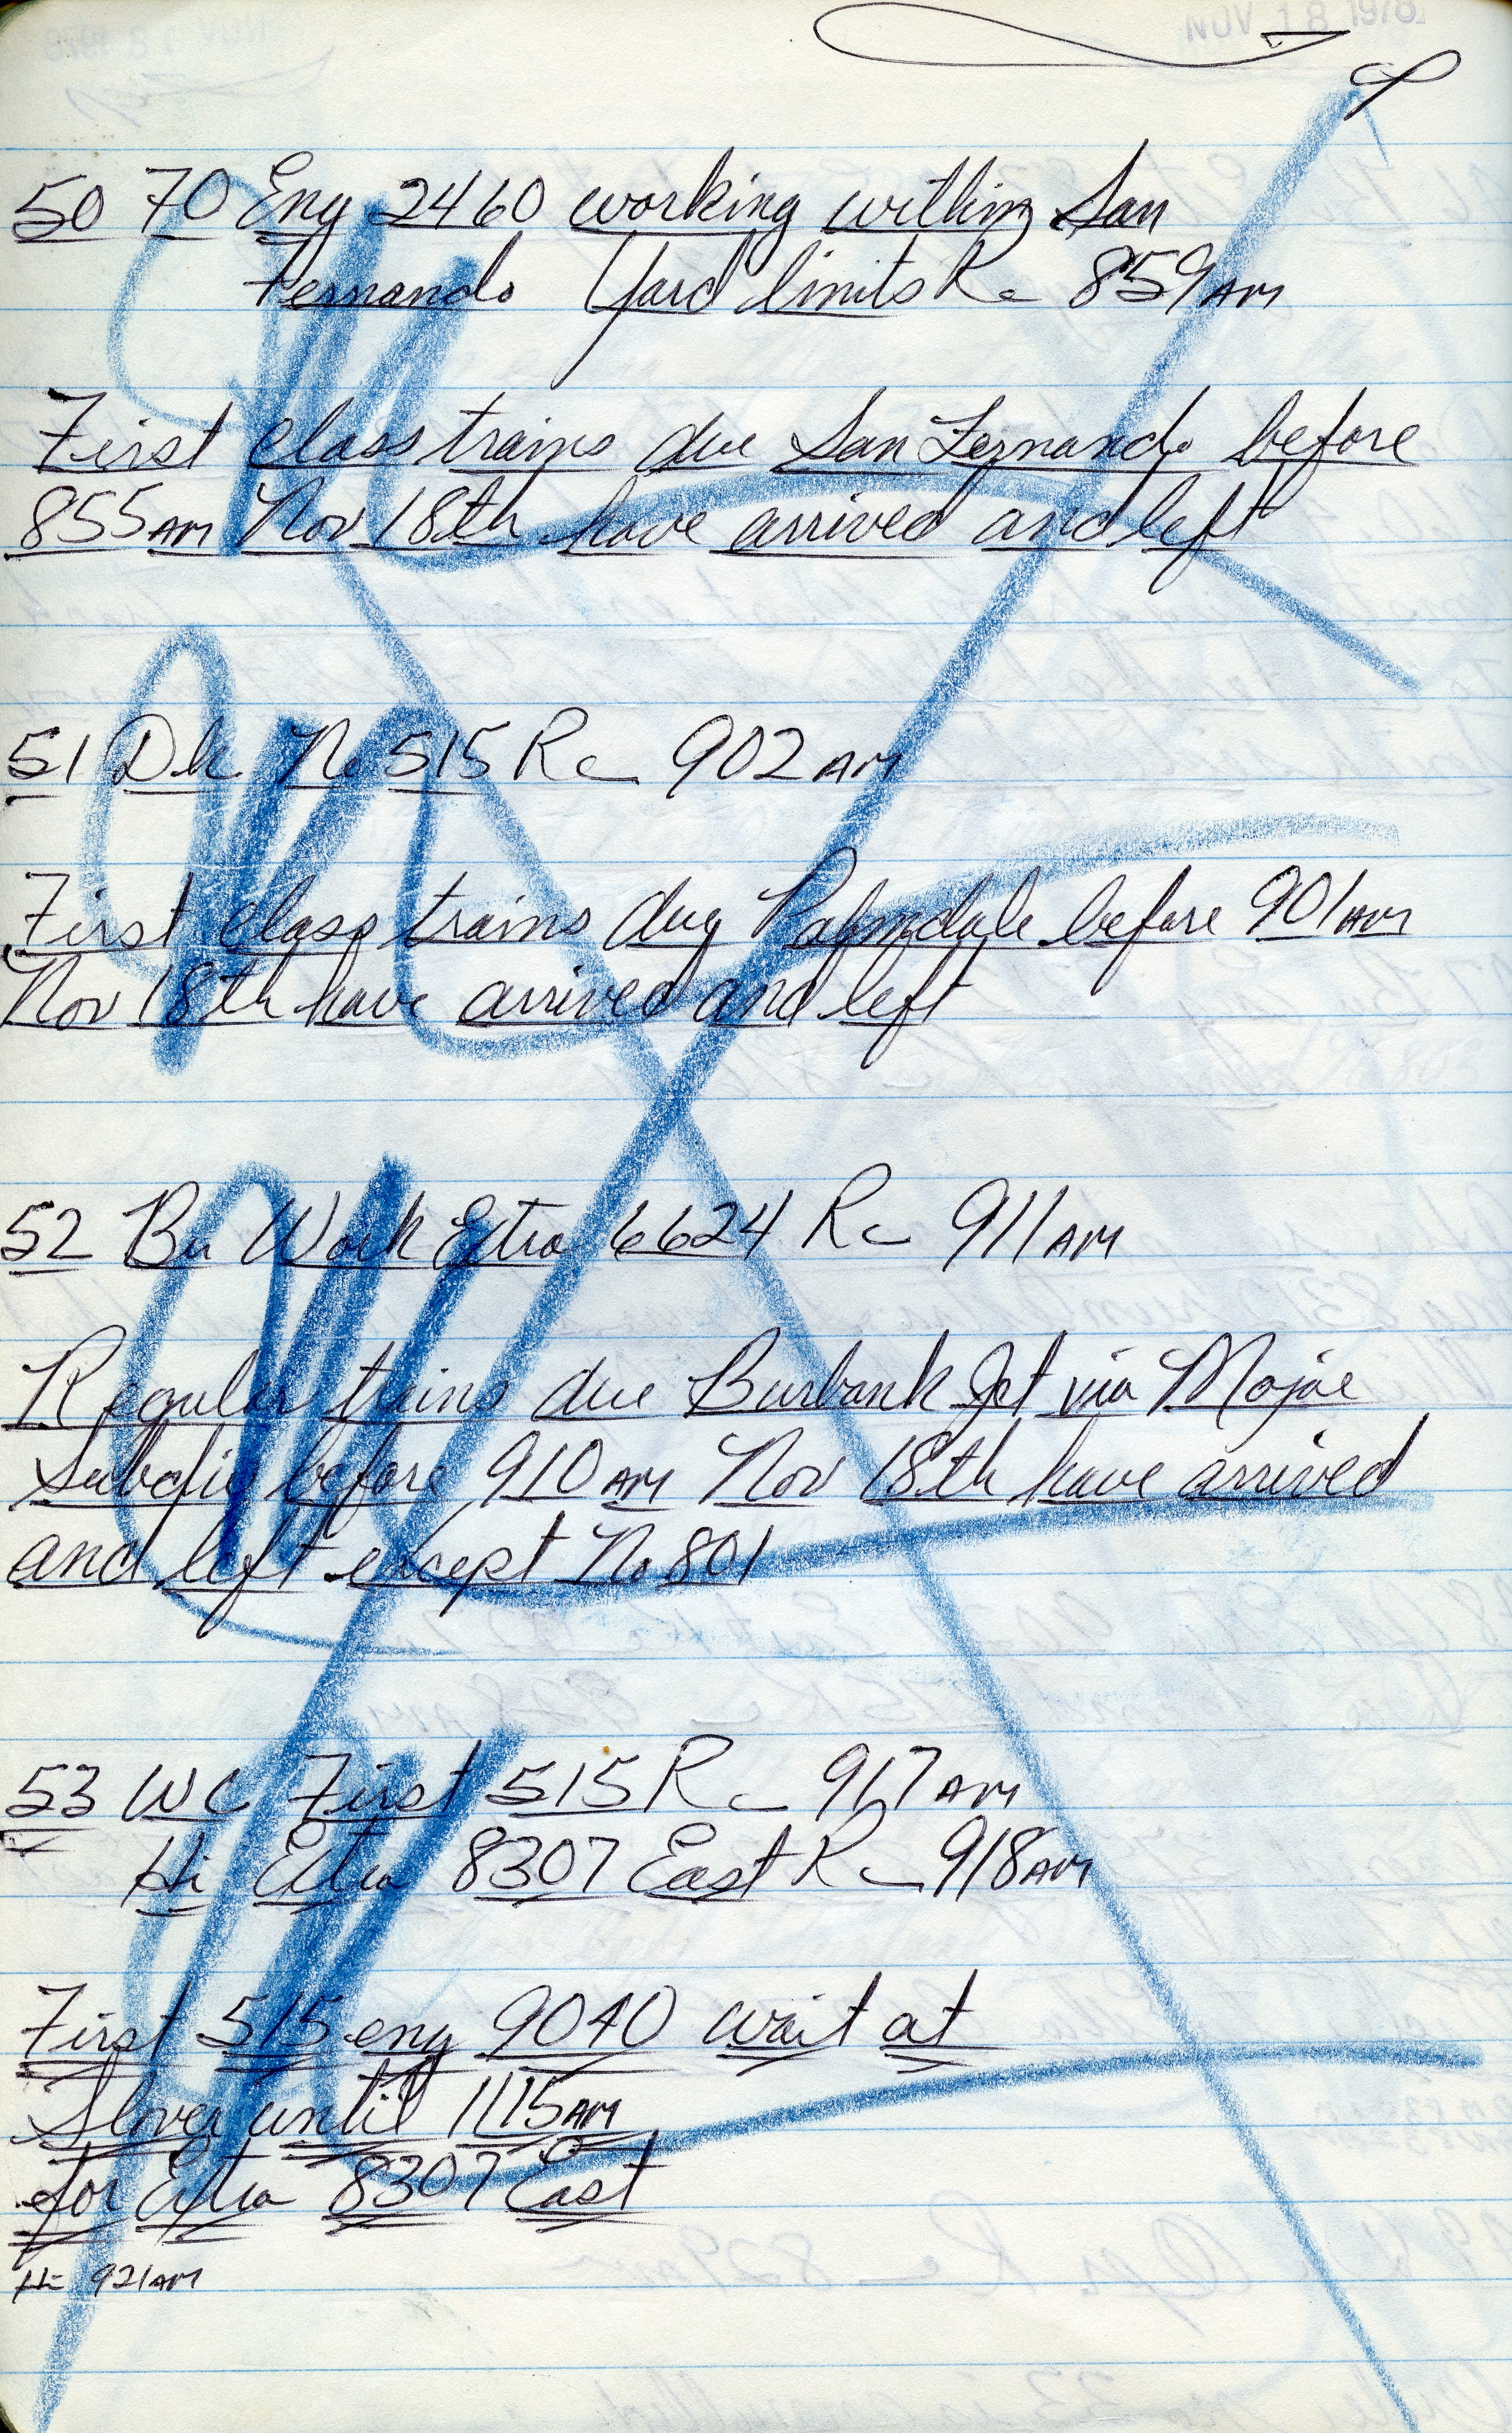 NOV 18 1978
50 70 Eng 2460 working within San
Fernando Yard limits Rc 859AM
First class trains due San Fernando before
855AM Nov 18th have arrived and left
51 Dk No 515 Rc 902AM
First class trains due Palmdale before 901AM
Nov 18th have arrived and left
52 Bu Work Extra 6624 Rc 911AM
Regular trains due Burbank Jct via Mojave
Subdiv before 910AM Nov 18th have arrived
and left except No 801
53 WC First 515 Rc 917AM
Hi Extra 8307 East Rc 918AM
First 515 eng 9040 wait at
Slover until 1115AM
for Extra 8307 East
Hi 921AM